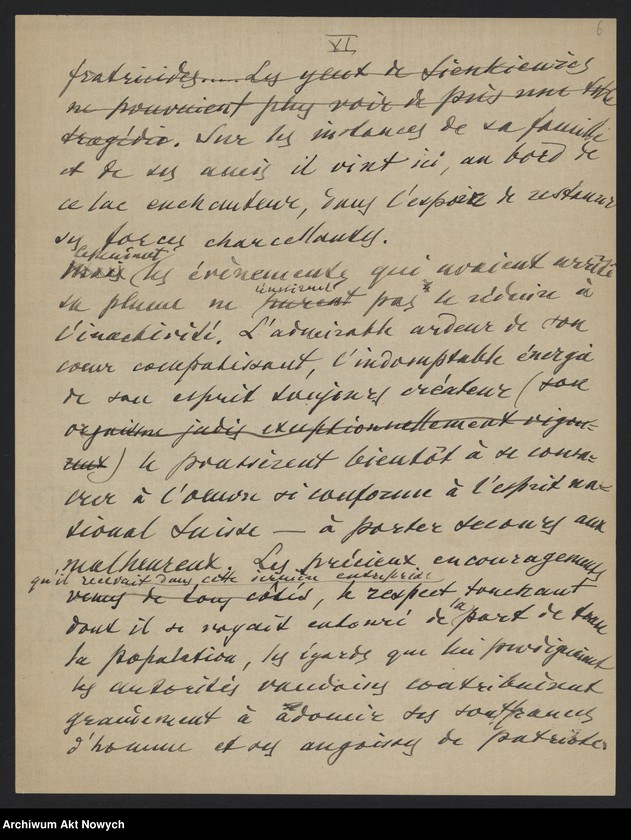 6
VI
fratricides..... Les yeux de Sienkiewicz
ne pouvaient plus voir de près une telle
tragédie. Sur les instances de sa famille
et de ses amis il vint ici, au bord de
ce lac enchanteur, dans l'espoir de restaurer
ses forces chancellantes.
Mais (les évènements qui avaient arrêté
sa plume ne purent pas le réduire à
l'inactivité. L'admirable ardeur de son
cœur compatissant, l'indomptable énergie
de son esprit toujours créateur (son
organisme jadis exceptionnellement vigou-
reux) le poussèrent bientôt à se consa-
crer à l'œuvre si conforme à l'esprit na-
tional Suisse — à porter secours aux
malheureux. Les précieux encouragements
qu'il recevait dans cette dernière entreprise
venus de tous côtés, le respect touchant
dont il se voyait entouré de la part de toute
la population, les égards que lui prodiguaient
les autorités vaudoises contribuèrent
grandement à adoucir ses souffrances
d'homme et ses angoisses de patriote
Archiwum Akt Nowych